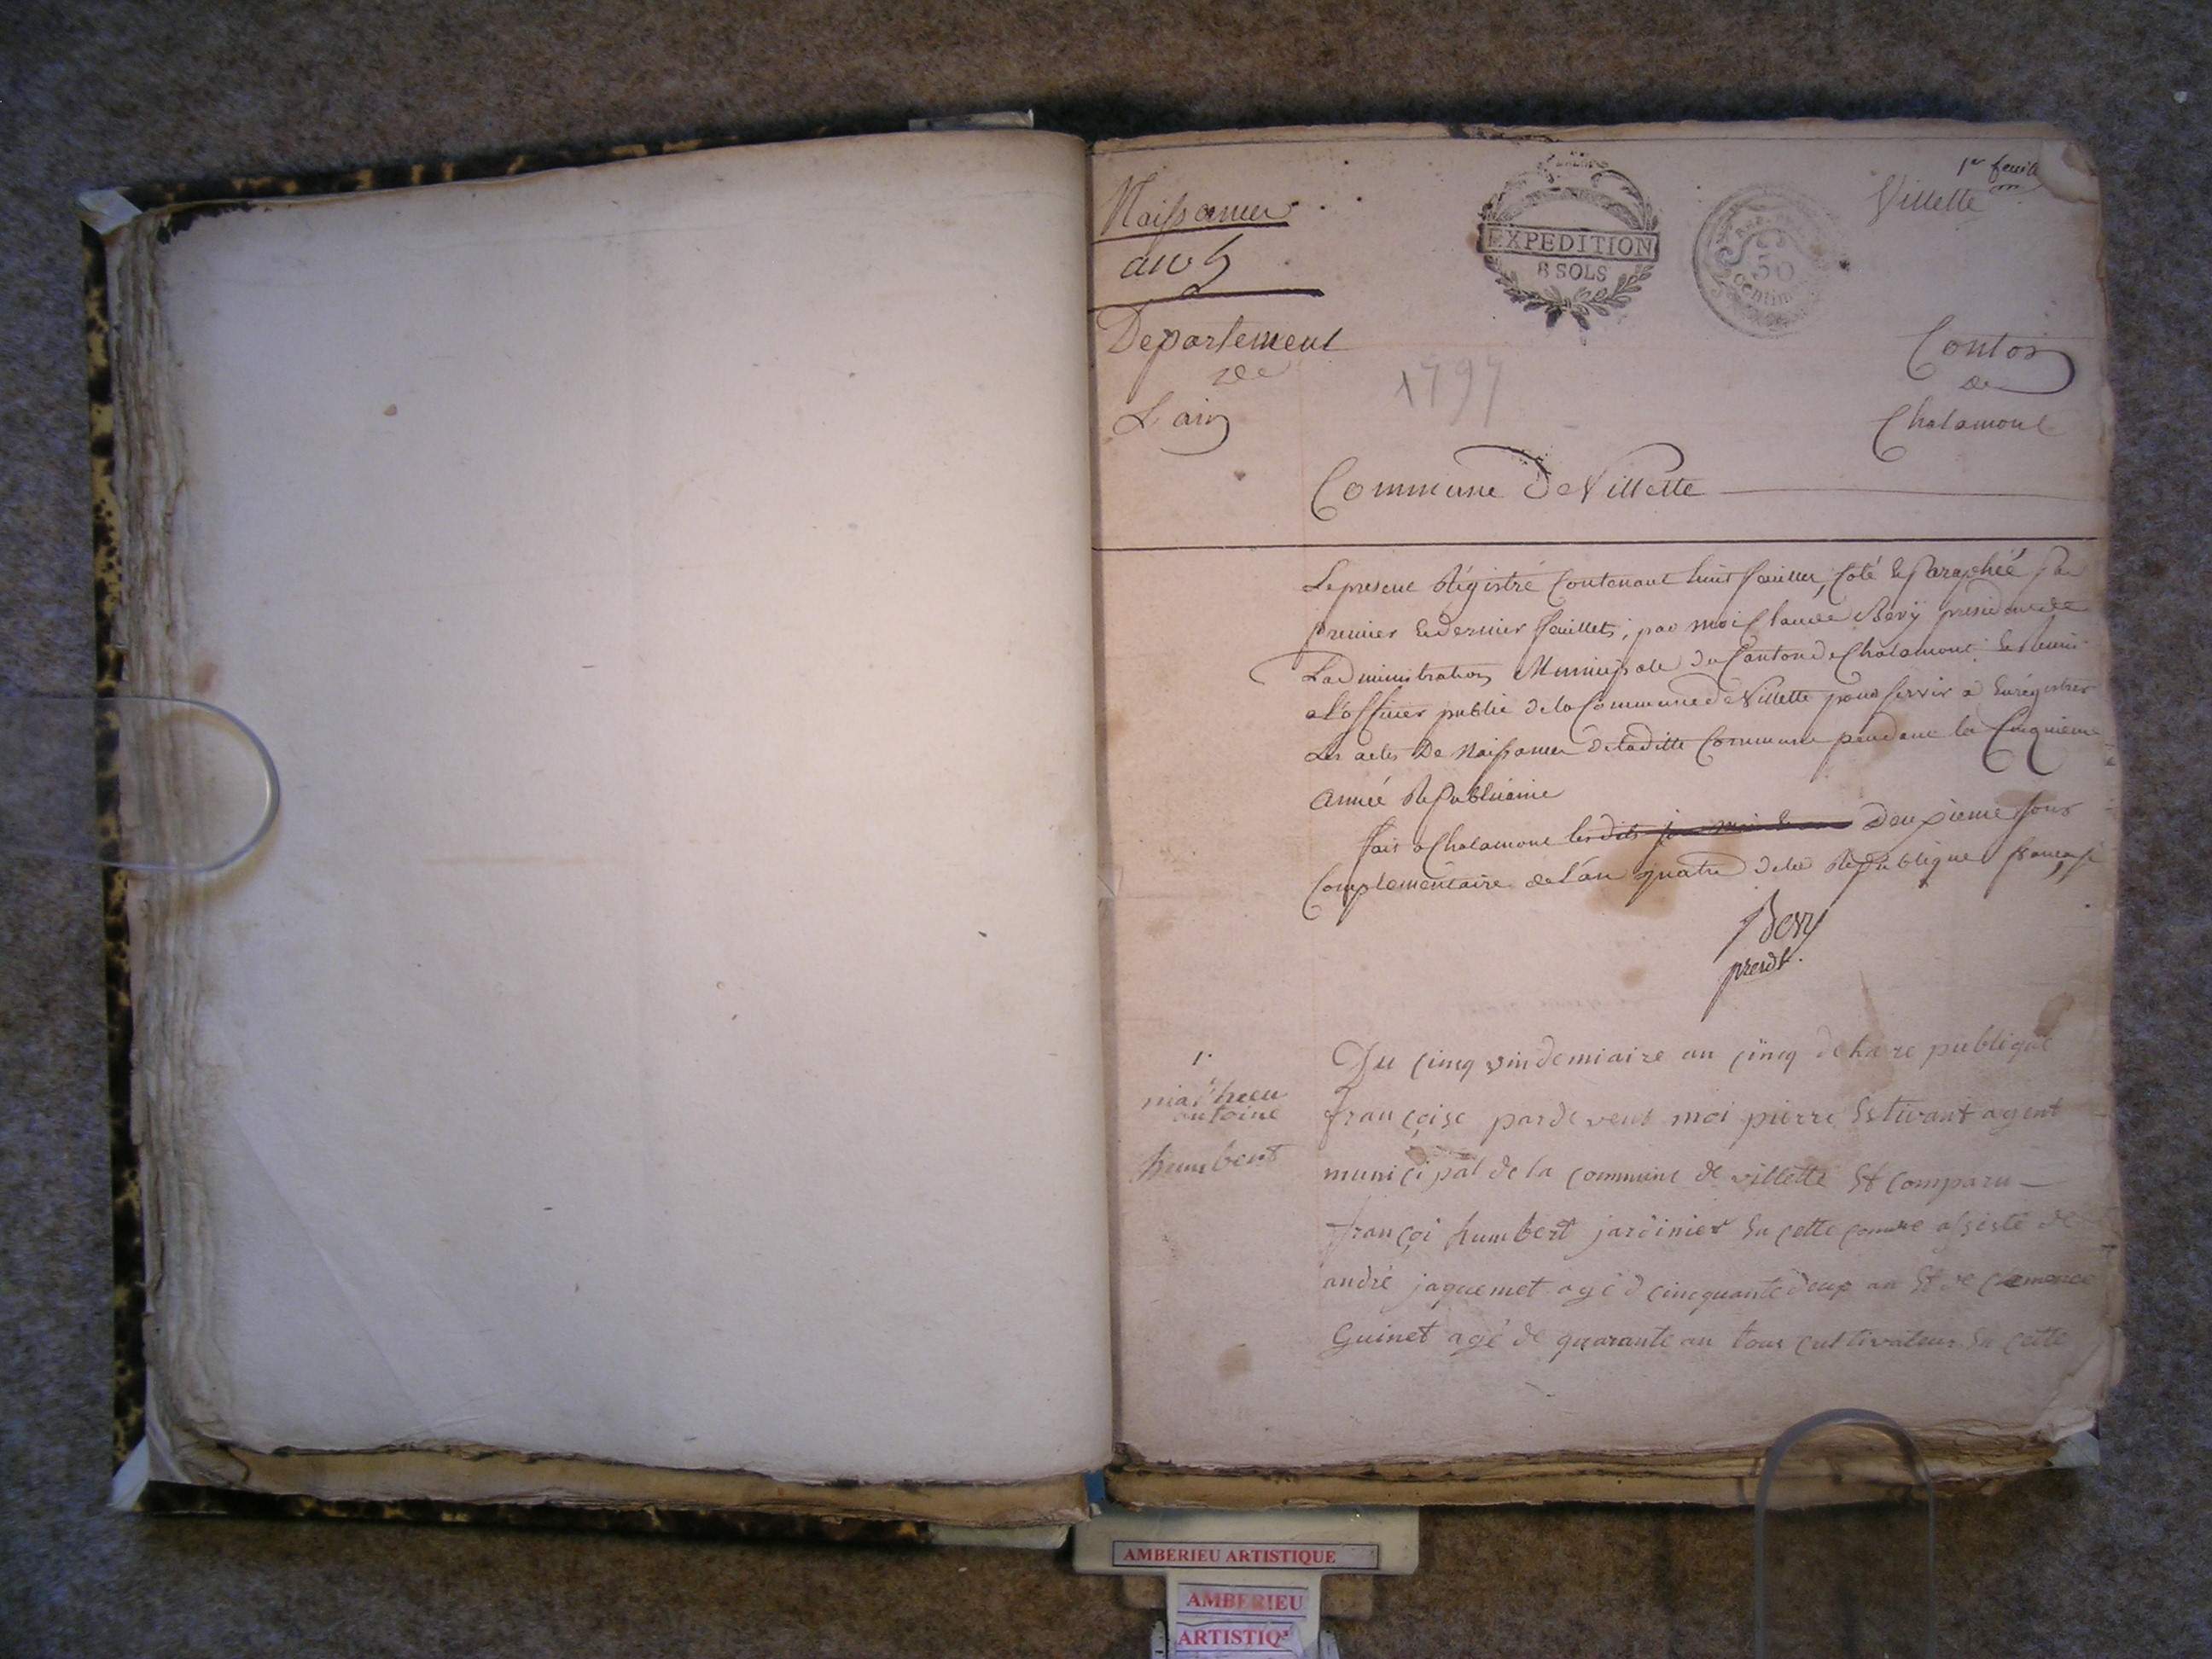 1er feuille
Villette
Naissances
an 5
EXPEDITION
8 SOLS
50
Centim
Departement
de
L'ain
1797
Canton
de
Chalamont
Commune De Villette
Le present Régistre Contenant huit feuillets, Coté & Paraphéé par
premier & dernier feuillets, par moi Claude Bevy president de
L'administration Municipale du Canton de Chalamont & Remis
a L'officier public de la Commune de Villette pour servir a Enrégistrer
Les actes De Naissances de laditte Commune pendant la Cinquieme
Année Republicaine
fait a Chalamont les dits deuxieme jour
Complementaire de L'an quatre de la Republique française
Bevy
presidt.
1.
mathieu
antoine
humbert
Du cinq vindemiaire an cinq de la re publique
françoise pardevent moi pierre Estivant agent
municipal de la commune de villette Et comparu
françoi humbert jardinier En cette comune assisté de
andré jaquemet agé d cincquante deux an Et de
Guinet agé de quarante an tous cultivateur En cette
AMBERIEU ARTISTIQUE
AMBERIEU
ARTISTIQ